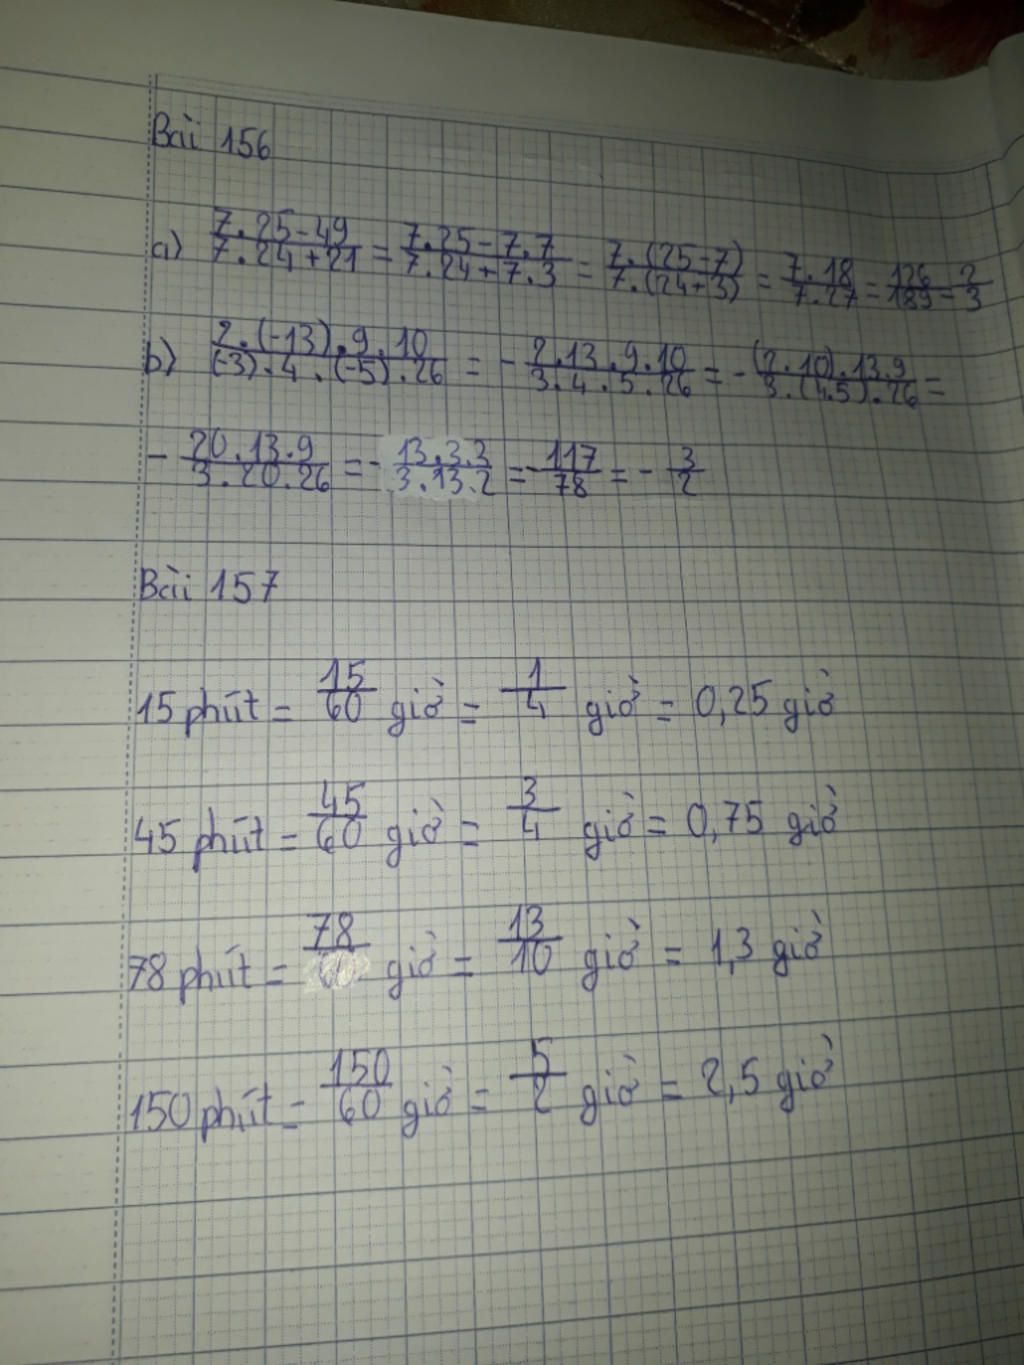 Bài 156
a) \frac{7.25-49}{7.24+21} = \frac{7.25-7.7}{7.24+7.3} = \frac{7.(25-7)}{7.(24+3)} = \frac{7.18}{7.27} = \frac{126}{189} = \frac{2}{3}
b) \frac{2.(-13).9.10}{(-3).4.(-5).26} = - \frac{2.13.9.10}{3.4.5.26} = - \frac{(2.10).13.9}{3.(4.5).26} =
- \frac{20.13.9}{3.20.26} = - \frac{13.3.3}{3.13.2} = - \frac{117}{78} = - \frac{3}{2}
Bài 157
15 phút = \frac{15}{60} giờ = \frac{1}{4} giờ = 0,25 giờ
45 phút = \frac{45}{60} giờ = \frac{3}{4} giờ = 0,75 giờ
78 phút = \frac{78}{60} giờ = \frac{13}{10} giờ = 1,3 giờ
150 phút = \frac{150}{60} giờ = \frac{5}{2} giờ = 2,5 giờ